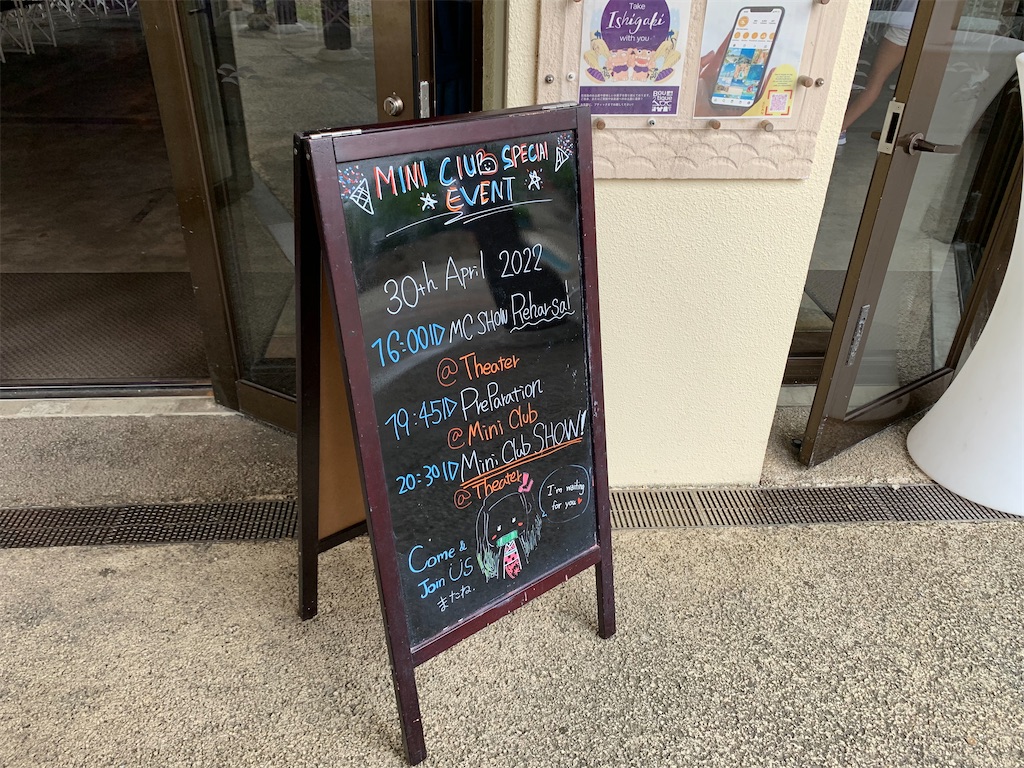 Take
Ishigaki
with you
MINI CLUB SPECIAL
EVENT
30th April 2022
16:00 MC SHOW Reharsal
@ Theater
19:45 PreParation
@ Mini Club
20:30 Mini Club SHOW!
@ Theater
I'm waiting
for you
Come &
Join US
またね.